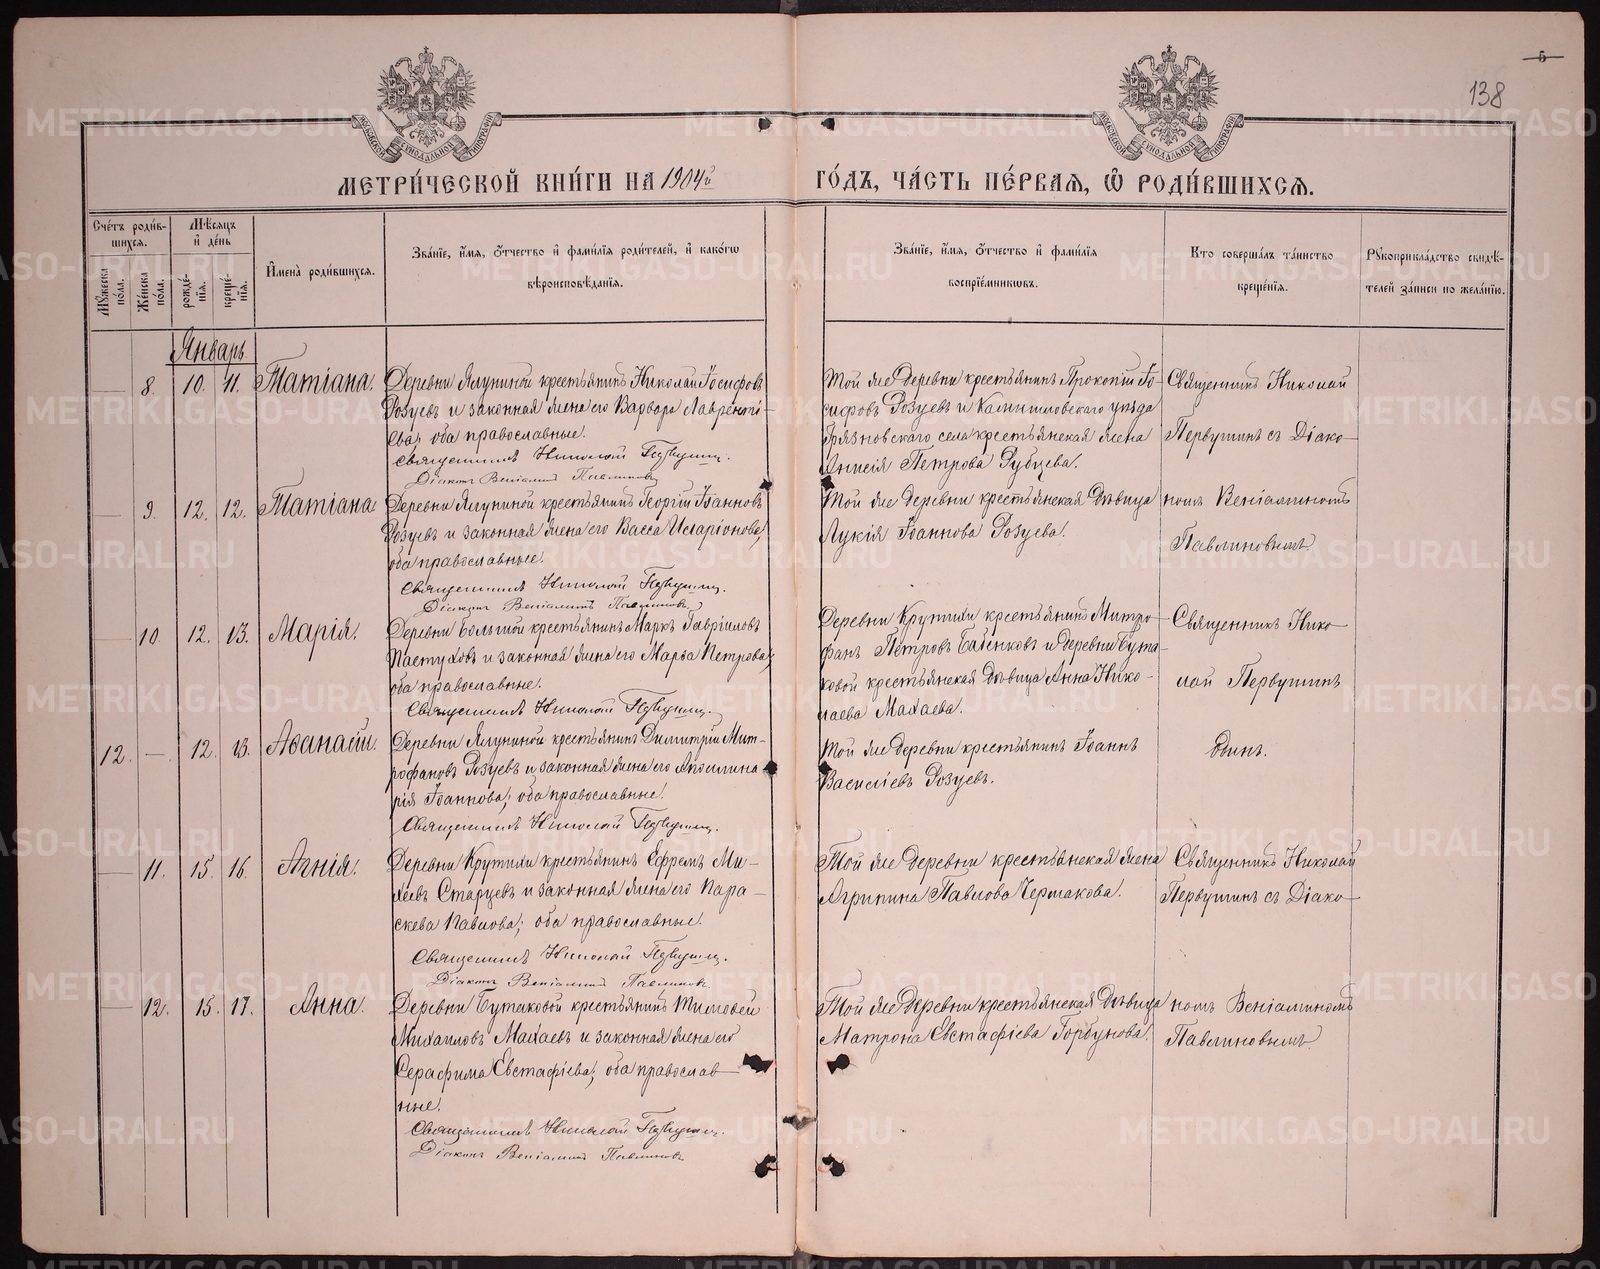 5
138
МЕТРИ́ЧЕСКОЙ КНИ́ГИ НА 1904й ГО́ДЪ, ЧА́СТЬ ПЕ́РВАЯ, Ѡ҆ РОДИ́ВШИХСЯ.
Сче́тъ роди́вшихся.
Мꙋ́жеска по́ла.
Же́нска по́ла.
Мѣ́сяцъ и҆ де́нь
рожде́нїя.
креще́нїя.
И҆мена̀ роди́вшихся.
Зва́нїе, и҆́мя, ѻ҆́тчество и҆ фами́лїя роди́телей, и҆ како́гѡ
вѣроисповѣ́данїя.
Зва́нїе, и҆́мя, ѻ҆́тчество и҆ фами́лїя
воспрїе́мникѡвъ.
Кто соверша́лъ та́инство
креще́нїя.
Рꙋкоприкла́дство свидѣ́-
телей за́писи по жела́нїю.
Январь.
8. 10. 11. Татіана.
Деревни Ялуниной крестьянинъ Николай Іосифовъ
Розуевъ и законная жена его Варвара Лаврентіе-
ва; оба православные.
Священникъ Николай Первушинъ.
Діаконъ Веніаминъ Павлиновъ
Той же деревни крестьянинъ Прокопій Іо-
сифовъ Розуевъ и Камышловскаго уѣзда
Грязновскаго села крестьянская жена
Анисія Петрова Рубцева.
Священникъ Николай
Первушинъ съ Діако-
9. 12. 12. Татіана.
Деревни Ялуниной крестьянинъ Георгій Іоанновъ
Розуевъ и законная жена его Васса Иларіонова;
оба православные.
Священникъ Николай Первушинъ.
Діаконъ Веніаминъ Павлиновъ
Той же деревни крестьянская дѣвица
Лукія Іоаннова Розуева.
номъ Веніаминомъ
Павлиновымъ.
10. 12. 13. Марія.
Деревни Большой крестьянинъ Маркъ Гавріиловъ
Пастуховъ и законная жена его Марѳа Петрова;
оба православные.
Священникъ Николай Первушинъ.
Деревни Крутихи крестьянинъ Митро-
фанъ Петровъ Бабенковъ и деревни Бута-
ковой крестьянская дѣвица Анна Нико-
лаева Махаева.
Священникъ Нико-
лай Первушинъ
12. — 12. 13. Аѳанасій.
Деревни Ялуниной крестьянинъ Димитрій Мит-
рофановъ Розуевъ и законная жена его Аполлина-
рія Іоаннова; оба православные.
Священникъ Николай Первушинъ.
Той же деревни крестьянинъ Іоаннъ
Василіевъ Розуевъ.
одинъ.
11. 15. 16. Агнія.
Деревни Крутихи крестьянинъ Ефремъ Ми-
хеевъ Старцевъ и законная жена его Пара-
скева Павлова; оба православные.
Священникъ Николай Первушинъ.
Діаконъ Веніаминъ Павлиновъ.
Той же деревни крестьянская жена
Агрипина Павлова Чермакова.
Священникъ Николай
Первушинъ съ Діако-
12. 15. 17. Анна.
Деревни Бутаковой крестьянинъ Тимоѳей
Михаиловъ Махаевъ и законная жена его
Серафима Евстафіева; оба православ-
ные.
Священникъ Николай Первушинъ.
Діаконъ Веніаминъ Павлиновъ
Той же деревни крестьянская дѣвица
Матрона Евстафіева Горбунова.
номъ Веніаминомъ
Павлиновымъ.
METRIKI.GASO-URAL.RU